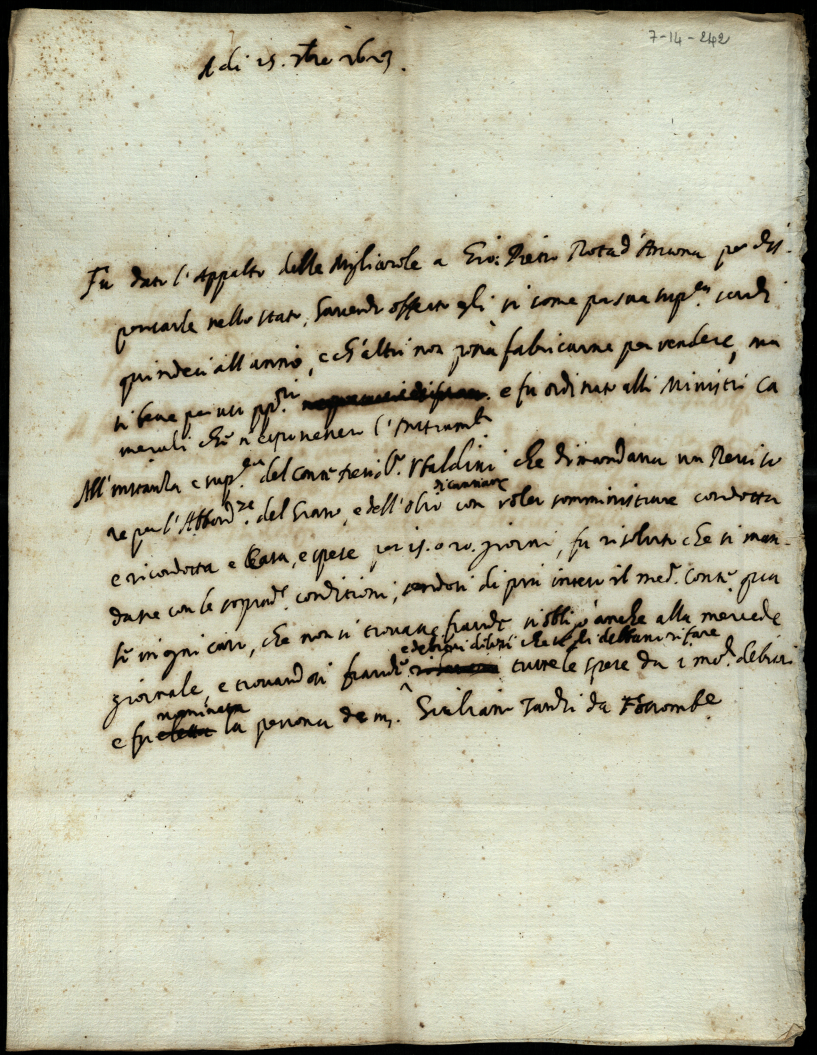 7-14-242
A di 15. 7bre 1623.
Fu dato l'Appalto delle Migliarole a Gio: Pietro Rota d'Ancona per dis-
pensarle nello stato, havendo offerto egli si come per sua sup.ca scudi
quindeci all'anno, e ch'altri non possa fabricarne per vendere, ma
si bene per uso pp.rio e fu ordinato alli Ministri Ca
merali che n'esponessero l'Instrum.to
All'instanza e sup.ca del Conte Ubaldini che dimandava un Reviso
re per l'Abbond.ze del Grano, e dell'olio con voler somministrare condotta
e ricondotta e spese per 15. o 20. giorni, fu risoluto che si man-
dasse con le soprad.e conditioni, di più inteso il med.o Conte qua
in ogni caso, che non si trovasse fraude si obli anche alla mercede
e debiti che debbano rifare
giornale, e trovandosi fraude tutte le spese da i med.i debitori
nominata
e fu eletta la persona de m. Giuliano Tardi da